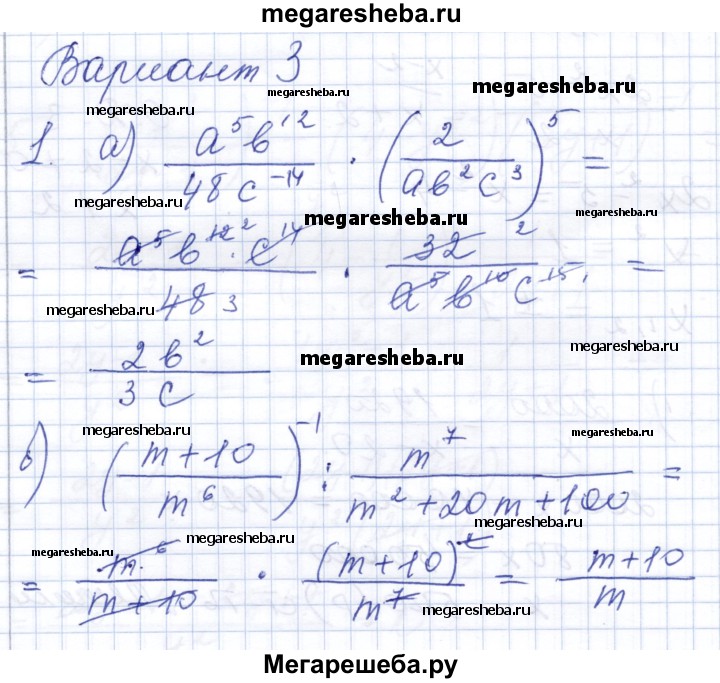 megaresheba.ru
Вариант 3
megaresheba.ru
megaresheba.ru
1. а) a⁵b¹²/48c⁻¹⁴ · (2/ab²c³)⁵ =
megaresheba.ru
megaresheba.ru
megaresheba.ru
= a⁵b¹² ² · c¹⁴/48 3 · 32 2/a⁵b¹⁰c¹⁵ ¹ =
megaresheba.ru
megaresheba.ru
= 2b²/3c
megaresheba.ru
megaresheba.ru
megaresheba.ru
б) (m+10/m⁶)⁻¹ : m⁷/m²+20m+100 =
megaresheba.ru
megaresheba.ru
megaresheba.ru
= m⁶/m+10 · (m+10)²/m⁷ = m+10/m
megaresheba.ru
Мегарешеба.ру